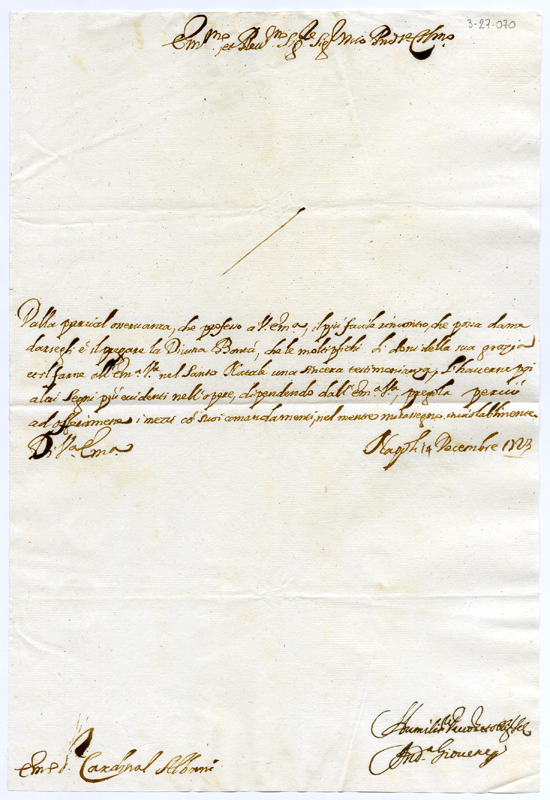 3-27-070
Em.mo et Rev.mo Sig.re Sig.r Mio P.ron Col.mo
Dalla parcial osservanza, che professo a V. Ema, il più facile rincontro, che possa da me
darsegli è il pregare la Divina Bontà, che le moltiplichi i doni della sua grazia
et il farne all'Em.a V.ra nel Santo Natale una sincera testimonianza, L'haverne poi
altri segni più evidenti nell'opere, dipendendo dall'Em.a V.ra, pregola perciò
ad esserimene i mezzi co' suoi comandamenti, nel mentre mi rassegno invariabilmente
Di V.a Em.a
Napoli 14 Decembre 1723
Humiliss.o
And.a Giovene
Em.e S.r Cardinal Albani